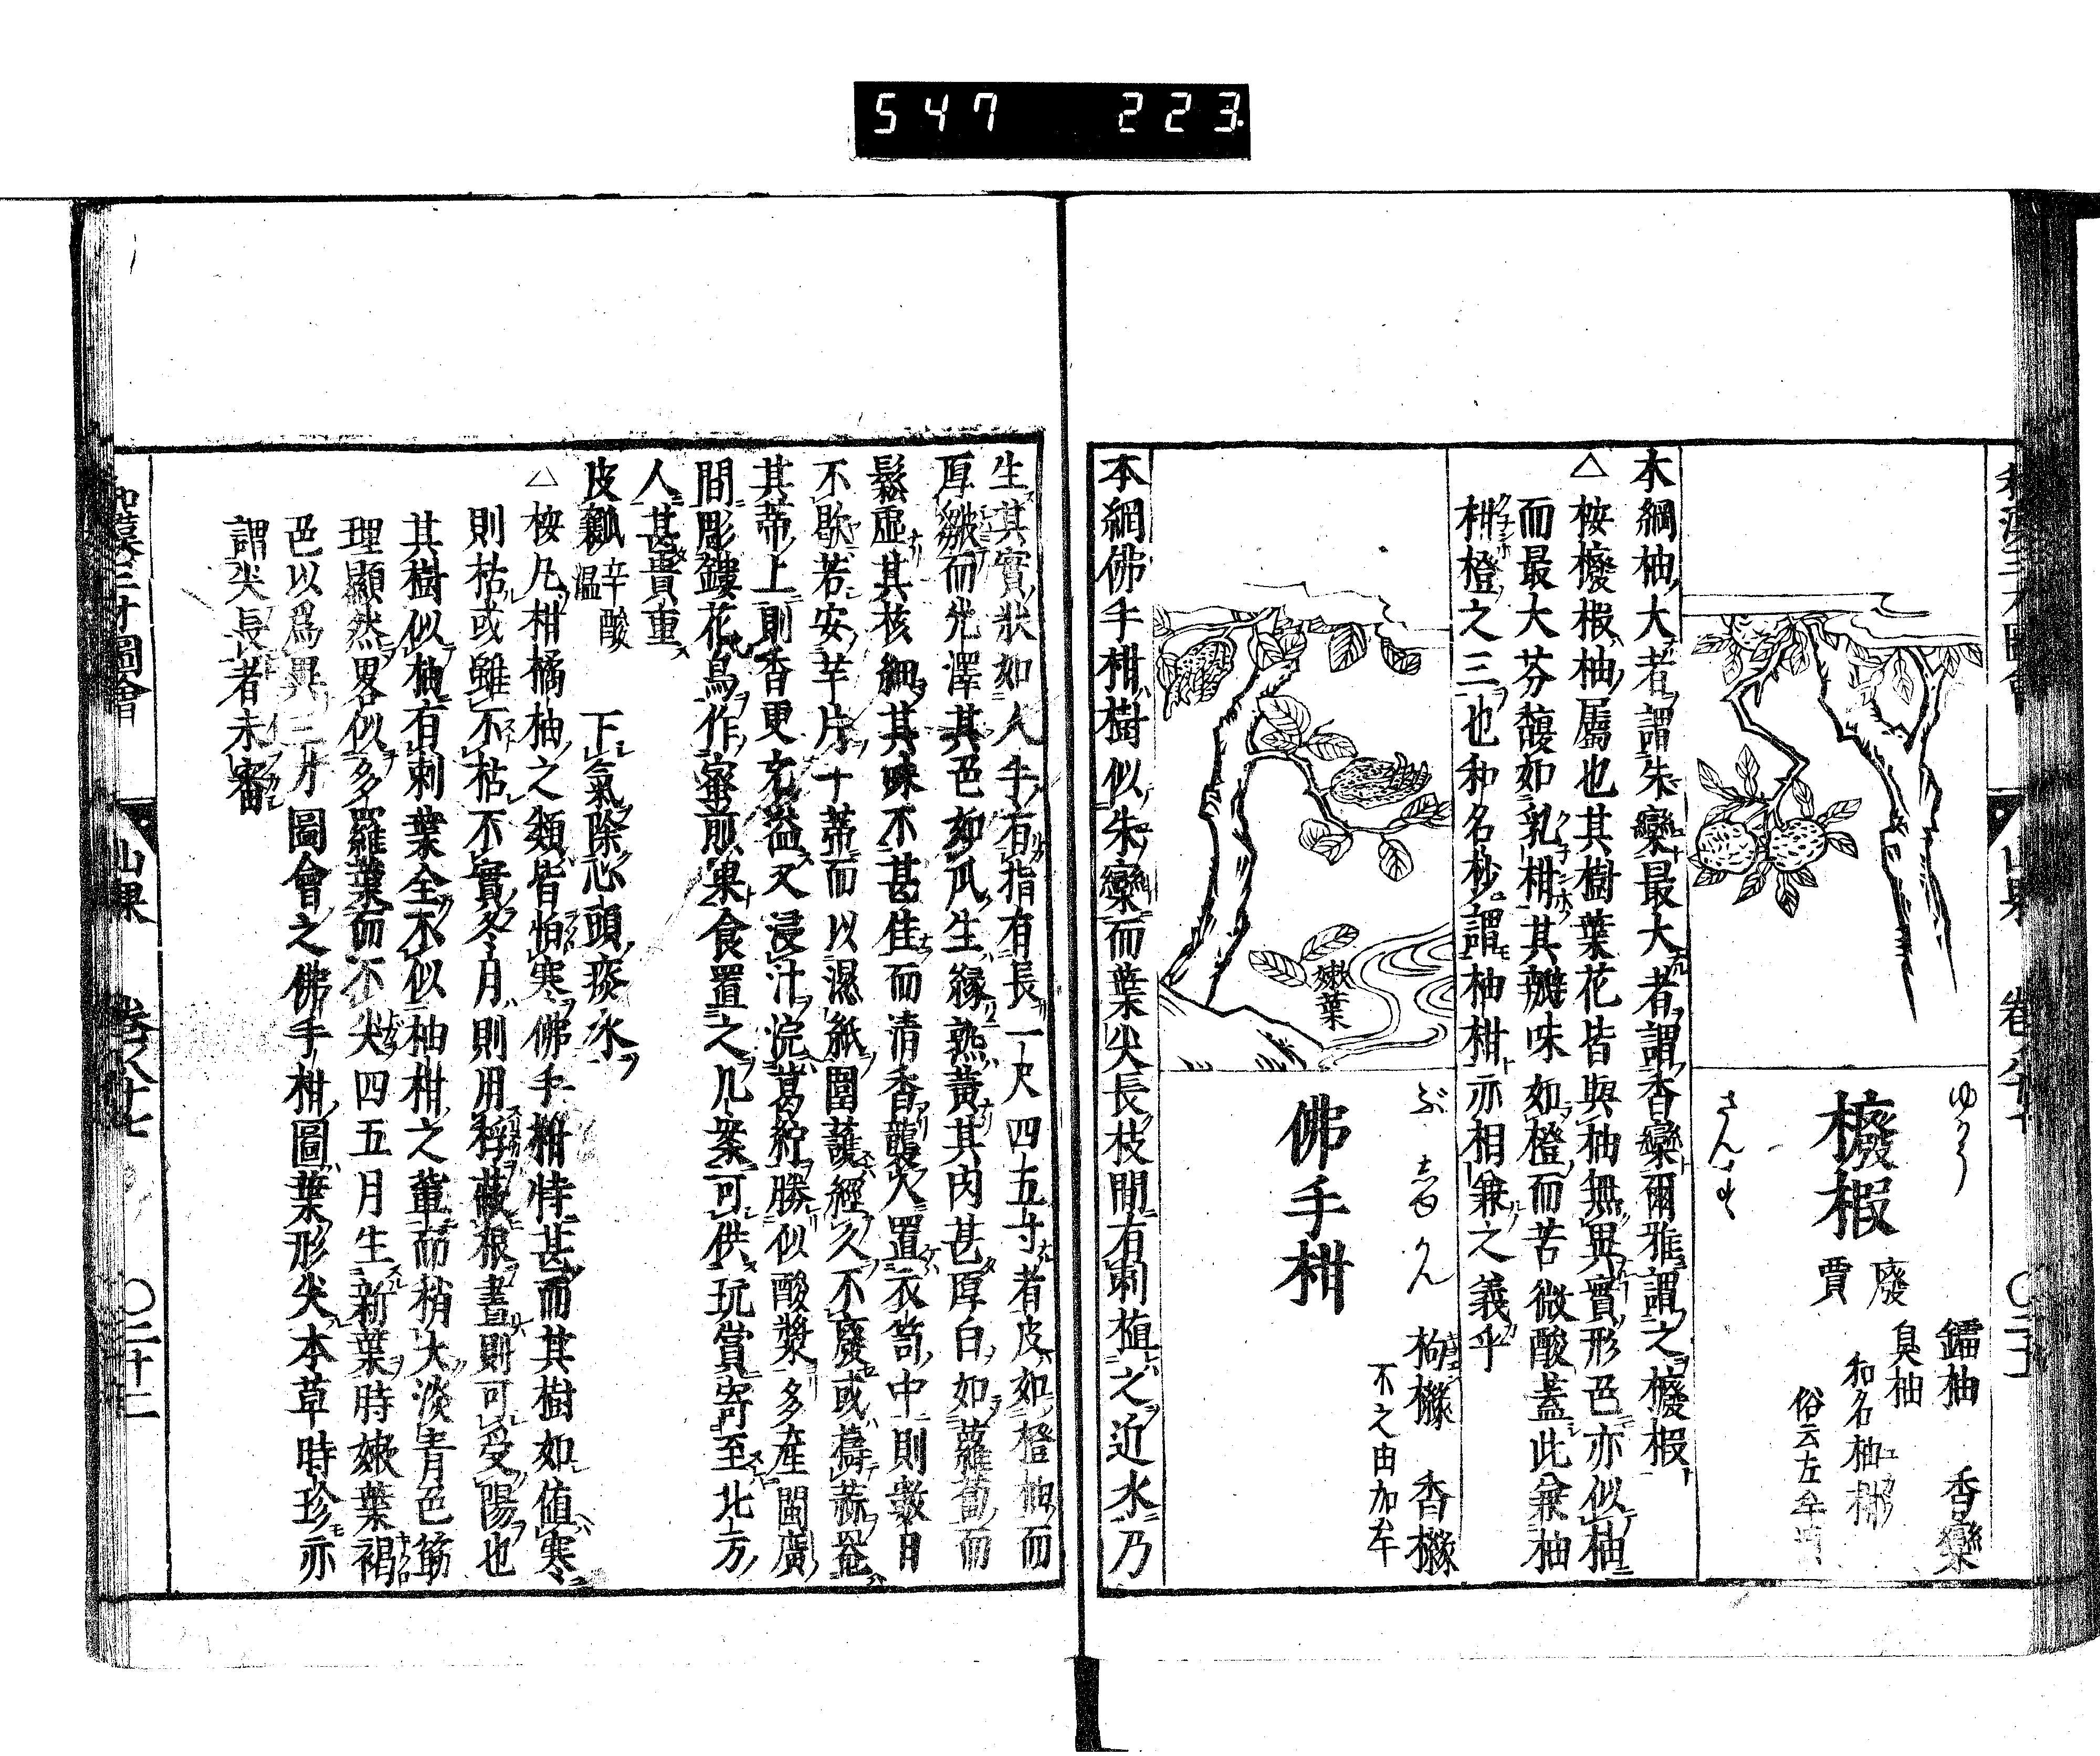 547 223
ゆかう
さんす
櫠椵
廢
賈
鐳柚 香欒
臭柚
和名柚柑
本綱柚大者謂朱欒最大者謂香欒爾雅謂之櫠椵
△按櫠椵柚屬也其樹葉花皆與柚無異實形色亦似柚
而最大芬馥如乳柑其瓣味如橙而苦微酸蓋此兼柚
柑橙之三也和名抄謂柚柑亦相兼之義乎
嫩葉
ぶしゆかん
佛手柑
枸櫞 香櫞
不之由加牟
本綱佛手柑樹似朱欒而葉尖長枝間有刺植之近水乃
生其實狀如人手有指有長一尺四五寸者皮如橙柚而
厚皺而光澤其色如瓜生綠熟黃其肉甚厚白如蘿蔔而
鬆虛其核細其味不甚佳而清香襲人置衣笥中則數日
不歇若安芋片于蒂而以濕紙圍護經久不癟或擣蒜罨
其蒂上則香更充溢又浸汁浣葛紵勝似酸漿多產閩廣
間彫鏤花鳥作蜜煎果食置之几案可供玩賞寄至北方
人甚貴重
皮瓤 辛酸溫 下氣除心頭痰水
△按凡柑橘柚之類皆怕寒佛手柑特甚而其樹如值寒
則枯或雖不枯不實冬月則用稃蔽根晝則可受陽也
其樹似柚有刺葉全不似柚柑之輩而稍大淡青色筋
理顯然畧似多羅葉而不尖四五月生新葉時嫩葉褐
色以爲異三才圖會之佛手柑圖葉形尖本草時珍亦
謂尖長者未審
和漢三才圖會 山果 卷八十七 〇二十二